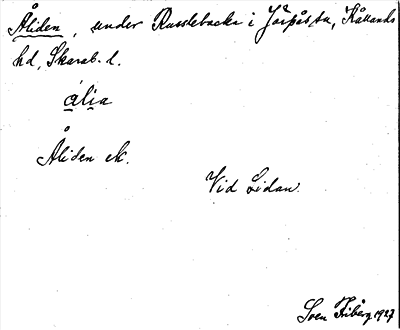 Åliden, under Russlebacka i Järpås sn, Kållands
hd, Skarab. l.
ália
Åliden ek.
Vid Lidan.
Sven Friberg 1927